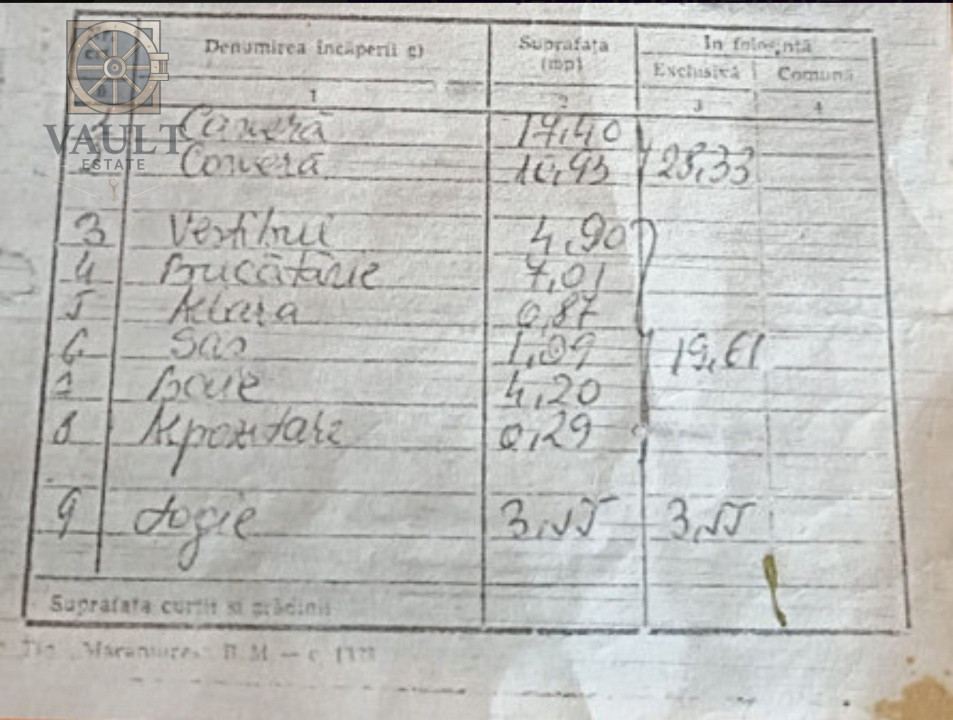 VAULT
ESTATE
Denumirea încăperii c) Suprafața (mp) În folosință
Exclusivă Comună
0 1 2 3 4
Cameră 17,40
Cameră 10,93 28,33
3 Vestibul 4,90
4 Bucătărie 7,01
5 0,87
6 Sas 1,09 19,61
7 Baie 4,20
8 0,29
9 Logie 3,55 3,55
Suprafața curții și grădinii